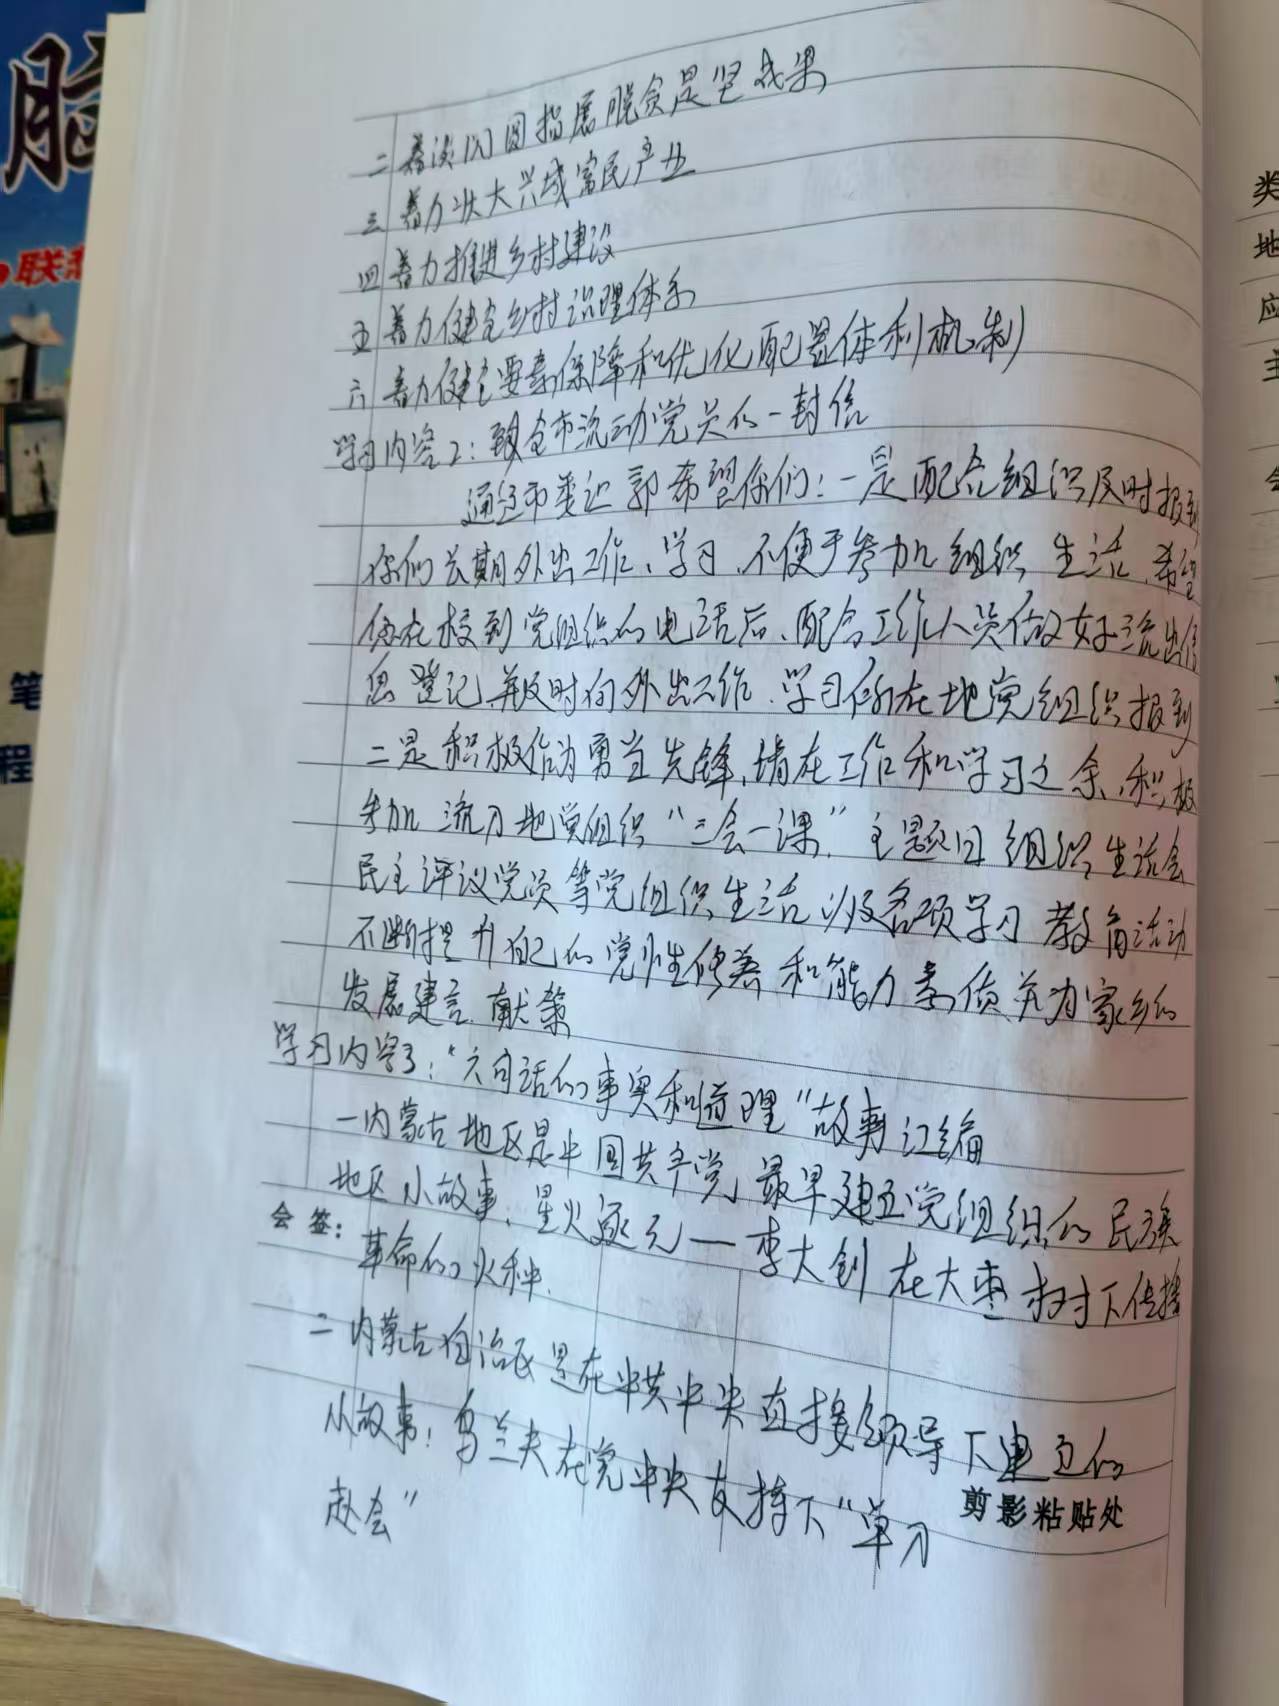 脑
联
笔
程
二 着 拓展脱贫 坚成果
三 着力壮大兴域富民产业
四 着力推进乡村建设
五 着力健完乡村治理体系
六 着力健全要素保障和优化配置体利机制
学习内容2：致全市流动党员的一封信
希望你们：一是配合组织及时报到
你们长期外出工作、学习、不便于参加组织生活、希望
你在接到党组织的电话后、配合工作人员做好流出信
息登记并及时向外出工作、学习所在地党组织报到
二是积极作为勇当先锋，请在工作和学习之余、积极
参加流入地党组织“三会一课”主题日组织生活会
民主评议党员等党组织生活以及各项学习教育活动
不断提升自己的党性修养和能力素质并为家乡的
发展建言、献策
学习内容3：“六句话的事实和道理”故事汇编
一内蒙古地区是中国共产党最早建立党组织的民族
地区 小故事：星火 — 李大钊在大枣树下传播
革命的火种.
会签：
二 内蒙古自治区是在中共中央直接领导下建立的
小故事：乌兰夫在党中央支持下“单刀
赴会”
剪影粘贴处
类
地
应
主
会